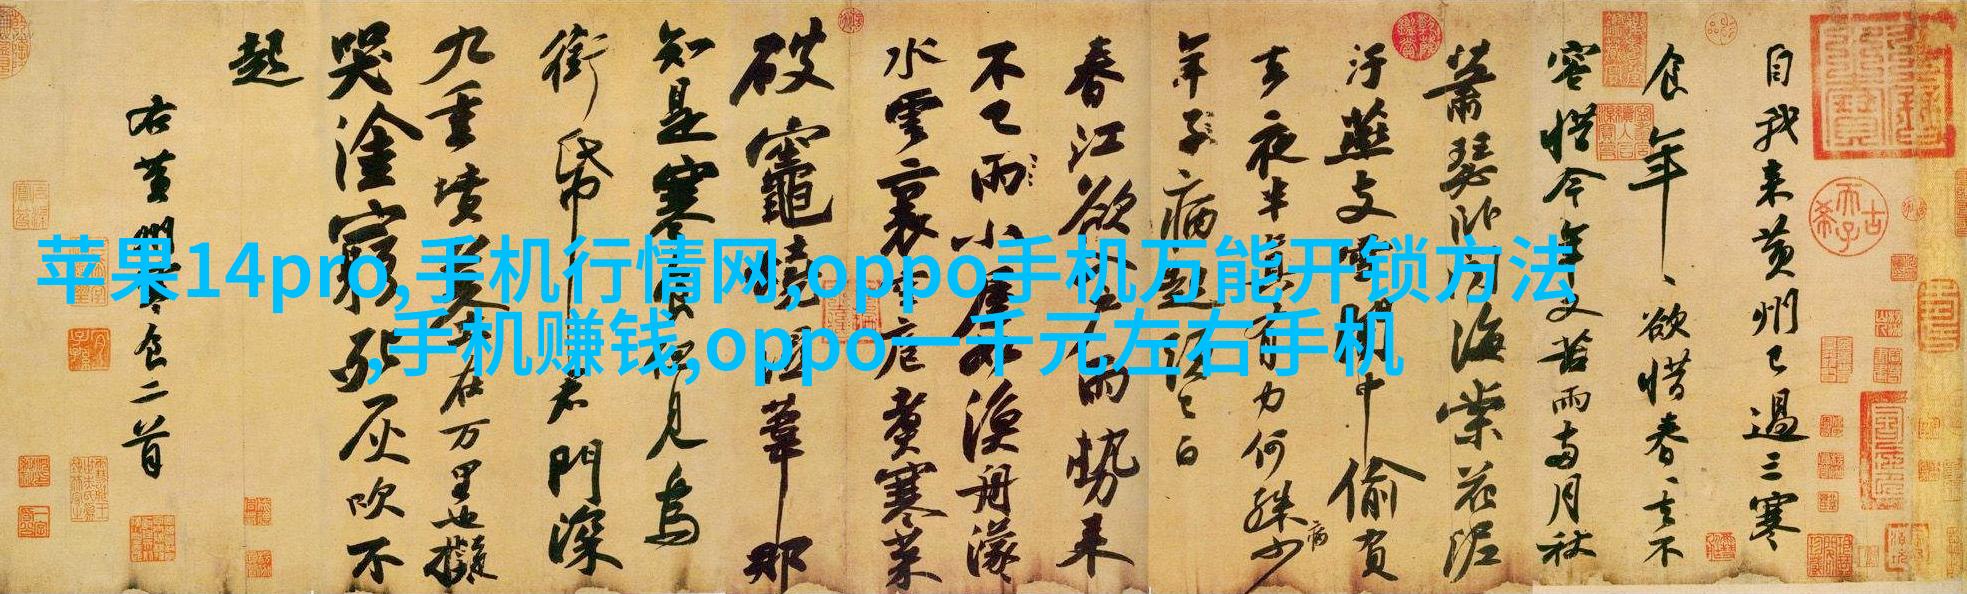 苹果14pro,手机行情网,oppo手机万能开锁方法
,手机赚钱,oppo一千元左右手机
自我来黄州已過三寒
食年、欲惜春、去不
容惜今年又苦雨兩月秋
蕭瑟卧聞海棠花泥
汙燕支雪闇中偷負
去夜半真有力何殊少
病
年子病起頭已白
春江欲入戶雨勢来
不已雨小屋如漁舟濛
水雲裏空庖煮寒菜
破竈燒濕葦那
知是寒食但見烏
銜帋君門深
九重墳墓在万里也擬
哭塗窮死灰吹不
起
右黄州寒食二首